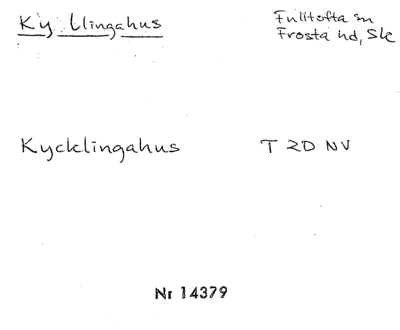 Ky llingahus
Fulltofta sn
Frosta hd, Sk
Kycklingahus T 2D NV
Nr 14379